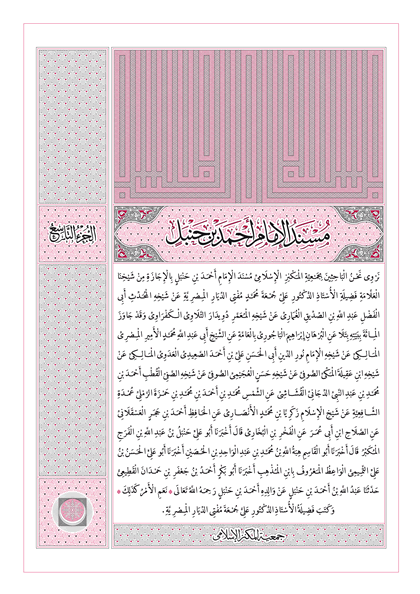 مُسْنَدُ الإِمَامِ أَحْمَدَ بْنِ حَنْبَلٍ
الجُزْءُ التَّاسِعُ
نَرْوِى نَحْنُ الْبَاحِثِينَ بِجَمْعِيَّةِ الْمَكْنِزِ الإِسْلَامِىِّ مُسْنَدَ الإِمَامِ أَحْمَدَ بْنِ حَنْبَلٍ بِالإِجَازَةِ مِنْ شَيْخِنَا
الْعَلَّامَةِ فَضِيلَةِ الأُسْتَاذِ الدُّكْتُورِ عَلِىّ جُمْعَة مُحَمَّدٍ مُفْتِى الدِّيَارِ الْمِصْرِيَّةِ عَنْ شَيْخِهِ الْمُحَدِّثِ أَبِى
الْفَضْلِ عَبْدِ اللَّهِ بْنِ الصِّدِّيقِ الْغُمَارِىِّ عَنْ شَيْخِهِ الْمُعَمَّرِ دُوِيدَارَ التَّلَاوِى الْكَفْرَاوِى وَقَدْ جَاوَزَ
الْمِائَةَ بِيَقِينٍ عَنِ الْبُرْهَانِ إِبْرَاهِيمَ الْبَاجُورِىِّ بِالْعَامَّةِ عَنِ الشَّيْخِ أَبِى عَبْدِ اللَّهِ مُحَمَّدٍ الأَمِيرِ الْمِصْرِىِّ
الْمَالِكِىِّ عَنْ شَيْخِهِ الإِمَامِ نُورِ الدِّينِ أَبِى الْحَسَنِ عَلِىِّ بْنِ أَحْمَدَ الصَّعِيدِىِّ الْعَدَوِىِّ الْمَالِكِىِّ عَنْ
شَيْخِهِ ابْنِ عَقِيلَةَ الْمَكِّىِّ الصُّوفِىِّ عَنْ شَيْخِهِ حَسَنٍ الْعُجَيْمِىِّ الصُّوفِىِّ عَنْ شَيْخِهِ الصَّفِىِّ الْقُطْبِ أَحْمَدَ بْنِ
مُحَمَّدِ بْنِ عَبْدِ النَّبِىِّ الدَّجَانِىِّ الْقُشَاشِىِّ عَنِ الشَّمْسِ مُحَمَّدِ بْنِ أَحْمَدَ بْنِ مُحَمَّدِ بْنِ حَمْزَةَ الرَّمْلِىِّ عُمْدَةِ
الشَّافِعِيَّةِ عَنْ شَيْخِ الإِسْلَامِ زَكَرِيَّا بْنِ مُحَمَّدٍ الأَنْصَارِىِّ عَنِ الْحَافِظِ أَحْمَدَ بْنِ حَجَرٍ الْعَسْقَلَانِىِّ
عَنِ الصَّلَاحِ ابْنِ أَبِى عُمَرَ عَنِ الْفَخْرِ بْنِ الْبُخَارِىِّ قَالَ أَخْبَرَنَا أَبُو عَلِىٍّ حَنْبَلُ بْنُ عَبْدِ اللَّهِ بْنِ الْفَرَجِ
الْمُكَبِّرُ قَالَ أَخْبَرَنَا أَبُو الْقَاسِمِ هِبَةُ اللَّهِ بْنُ مُحَمَّدِ بْنِ عَبْدِ الْوَاحِدِ بْنِ الْحُصَيْنِ أَخْبَرَنَا أَبُو عَلِىٍّ الْحَسَنُ بْنُ
عَلِىٍّ التَّمِيمِىُّ الْوَاعِظُ الْمَعْرُوفُ بِابْنِ الْمُذْهِبِ أَخْبَرَنَا أَبُو بَكْرٍ أَحْمَدُ بْنُ جَعْفَرِ بْنِ حَمْدَانَ الْقَطِيعِىُّ
حَدَّثَنَا عَبْدُ اللَّهِ بْنُ أَحْمَدَ بْنِ حَنْبَلٍ عَنْ وَالِدِهِ أَحْمَدَ بْنِ حَنْبَلٍ رَحِمَهُ اللَّهُ تَعَالَى * نَعَمِ الأَمْرُ كَذَلِكَ *
وَكَتَبَ فَضِيلَةُ الأُسْتَاذِ الدُّكْتُورِ عَلِىّ جُمْعَة مُفْتِى الدِّيَارِ الْمِصْرِيَّةِ.
جمعية المكنز الإسلامى